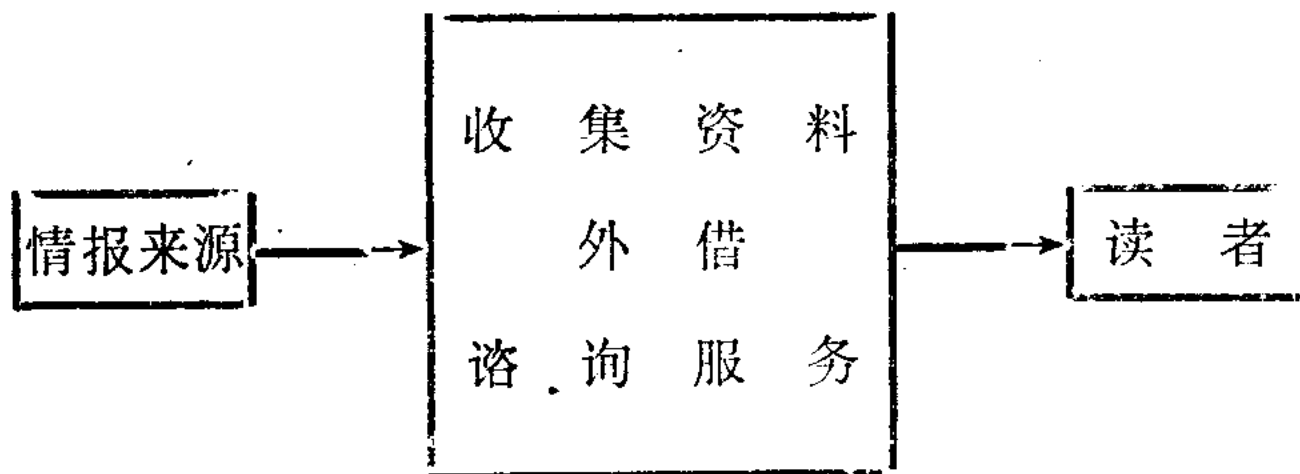 情报来源
收集资料
外借
谘询服务
读者